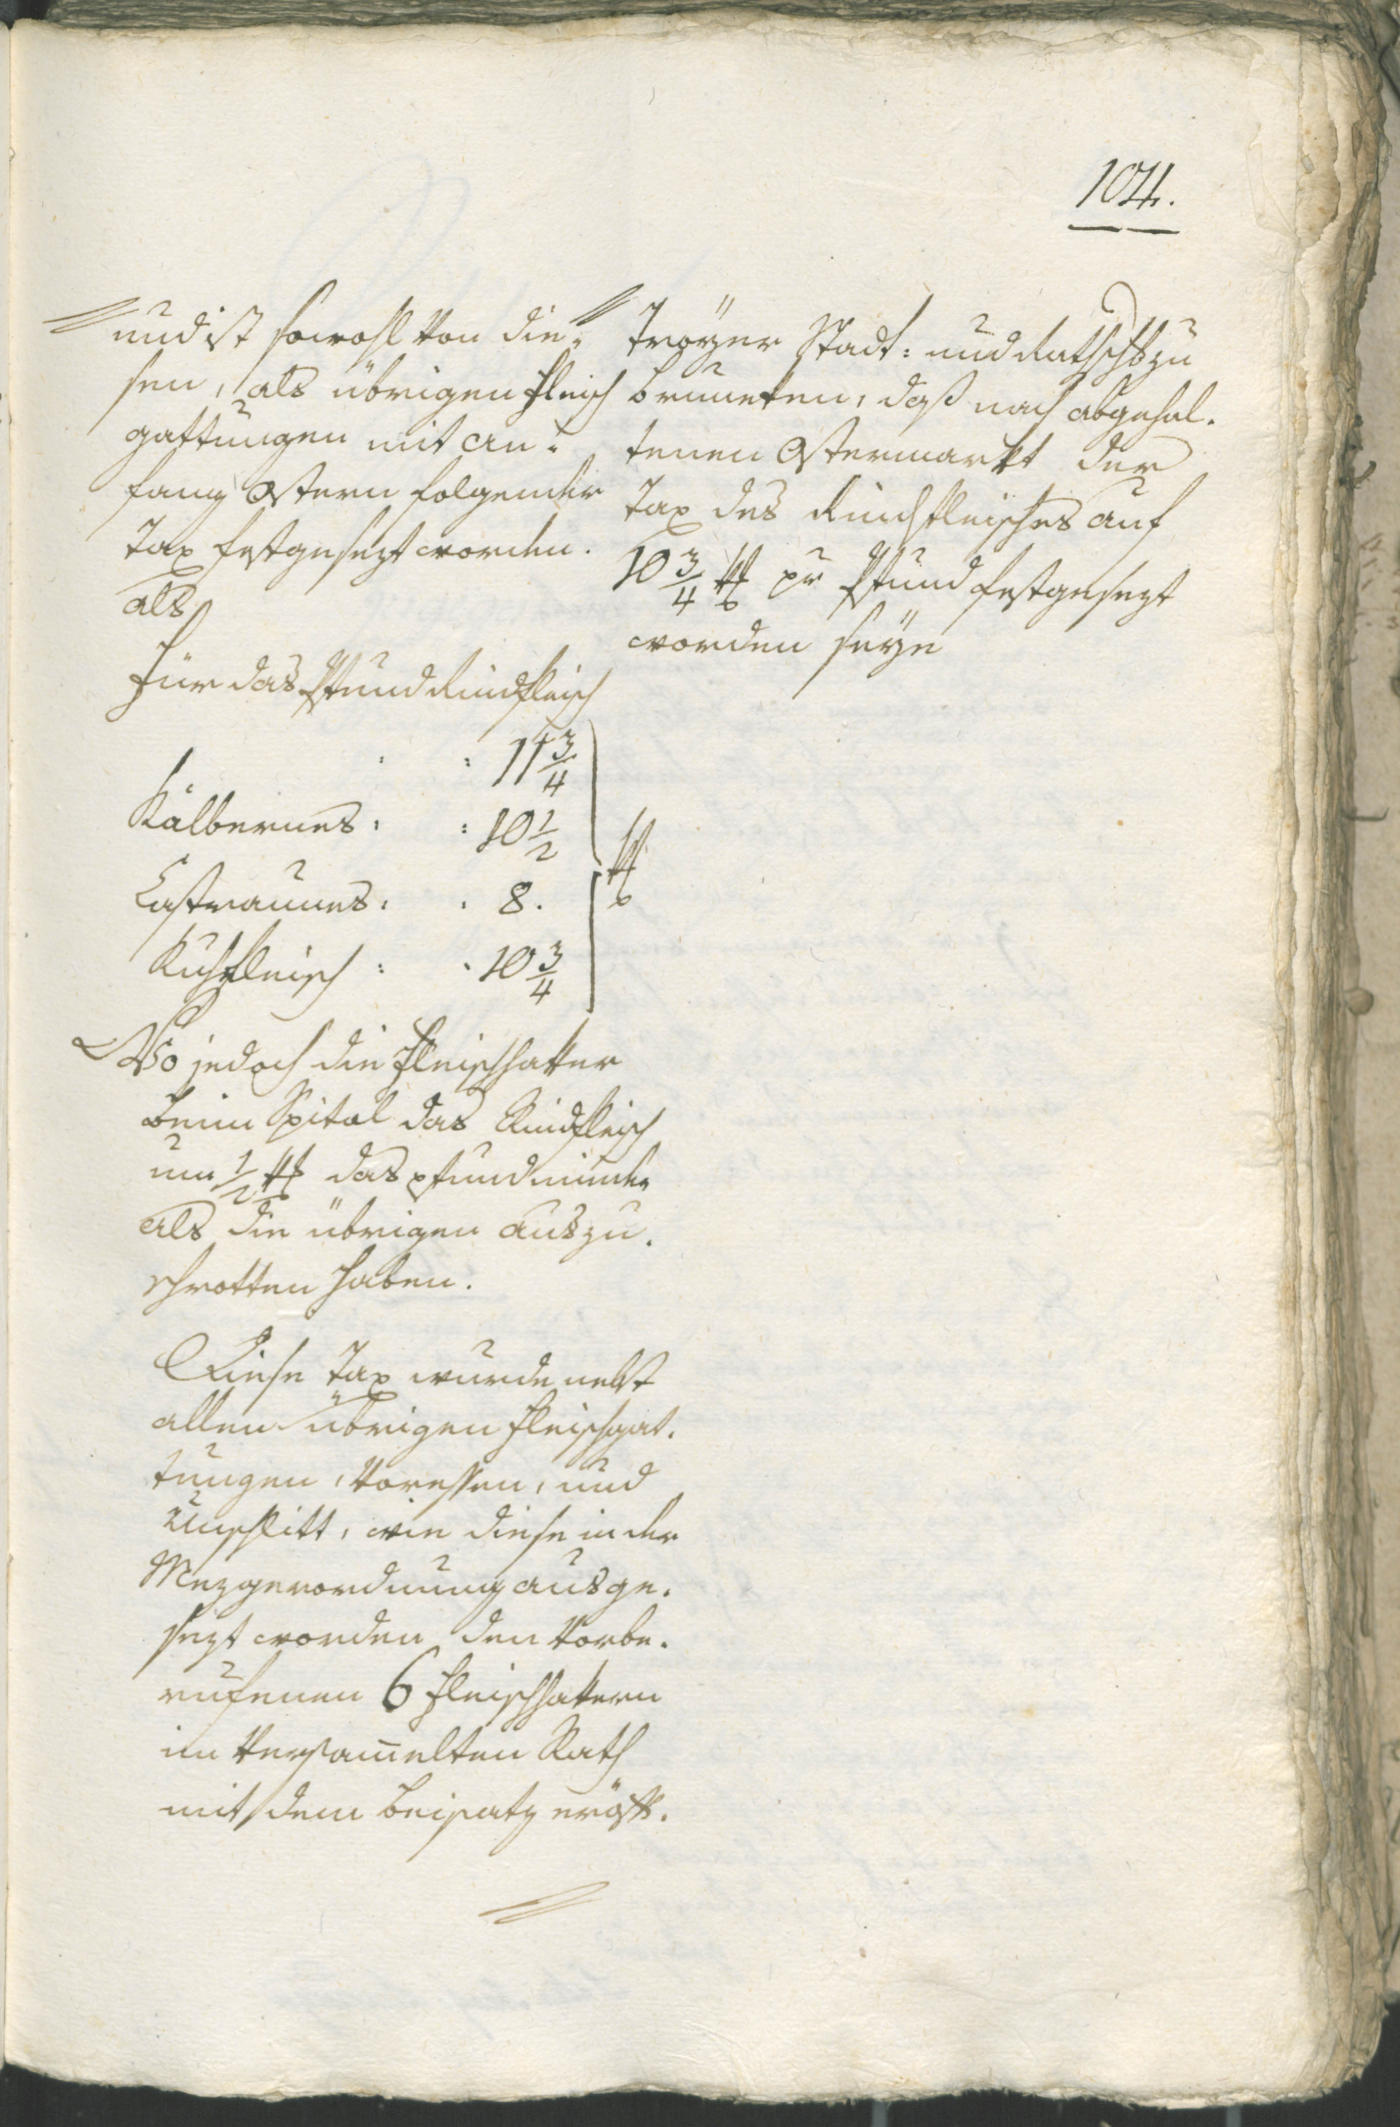 104.
und ist sowohl von die¬
sen, als übrigen Fleisch
gattungen mit an¬
fang Ostern folgender
Tax festgesezt worden.
als
Für das Pfund Rindfleisch
: : 11 3/4
Kälbernes : : 10 1/2
Castraunes : : 8. xr
Kuhfleisch : : 10 3/4
Wo jedoch die Fleischhaker
beim Spital das Rindfleisch
um 1/2 xr das Pfund minder
als die übrigen auszu¬
schrotten haben.
Diese Tax wurde nebst
allen übrigen Fleischgat¬
tungen, Voressen, und
Unschlitt, wie diese in der
Mezgerordnung ausge¬
sezt worden den Vorbe¬
rufenen 6 Fleischhakern
im Versam̄elten Rath
mit dem Beisatz eröff¬
Troÿer Stadt: und zu
Bruneken, daß nach abgehal¬
tenen Ostermarkt der
Tax des Rindfleisches auf
10 3/4 xr pr Pfund festgesezt
worden seÿe